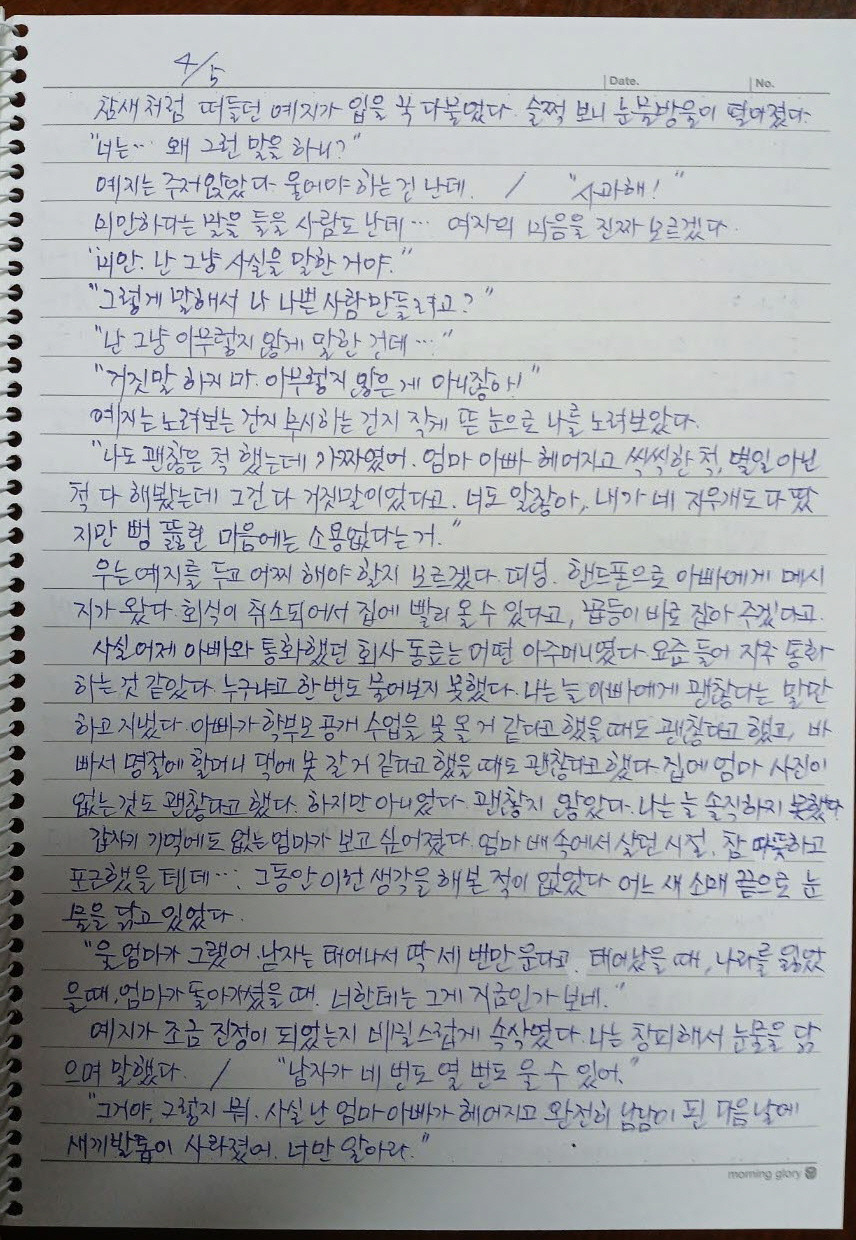 4/5
Date. No.
참새처럼 떠들던 예지가 입을 꾹 다물었다. 슬쩍 보니 눈물방울이 떨어졌다.
"너는… 왜 그런 말을 하니?"
예지는 주저앉았다. 울어야 하는 건 난데. / "사과해!"
미안하다는 말을 들을 사람도 난데… 여자의 마음을 진짜 모르겠다.
"미안. 난 그냥 사실을 말한 거야."
"그렇게 말해서 나 나쁜 사람 만들려고?"
"난 그냥 아무렇지 않게 말한 건데…"
"거짓말 하지 마. 아무렇지 않은 게 아니잖아!"
예지는 노려보는 건지 무시하는 건지 작게 뜬 눈으로 나를 노려보았다.
"나도 괜찮은 척 했는데 가짜였어. 엄마 아빠 헤어지고 씩씩한 척, 별일 아닌
척 다 해봤는데 그건 다 거짓말이었다고. 너도 알잖아, 내가 네 지우개도 다 땄
지만 뻥 뚫린 마음에는 소용없다는 거."
우는 예지를 두고 어찌 해야 할지 모르겠다. 띠딩. 핸드폰으로 아빠에게 메시
지가 왔다. 회식이 취소되어서 집에 빨리 올 수 있다고, 꼽등이 바로 잡아 주겠다고.
사실 어제 아빠와 통화했던 회사 동료는 어떤 아주머니였다. 요즘 들어 자주 통화
하는 것 같았다. 누구냐고 한 번도 물어보지 못했다. 나는 늘 아빠에게 괜찮다는 말만
하고 지냈다. 아빠가 학부모 공개 수업을 못 올 거 같다고 했을 때도 괜찮다고 했고, 바
빠서 명절에 할머니 댁에 못 갈 거 같다고 했을 때도 괜찮다고 했다. 집에 엄마 사진이
없는 것도 괜찮다고 했다. 하지만 아니었다. 괜찮지 않았다. 나는 늘 솔직하지 못했다.
갑자기 기억에도 없는 엄마가 보고 싶어졌다. 엄마 배 속에서 살던 시절. 참 따뜻하고
포근했을 텐데…. 그동안 이런 생각을 해본 적이 없었다. 어느 새 소매 끝으로 눈
물을 닦고 있었다.
"울 엄마가 그랬어. 남자는 태어나서 딱 세 번만 운다고. 태어났을 때, 나라를 잃었
을 때, 엄마가 돌아가셨을 때. 너한테는 그게 지금인가 보네."
예지가 조금 진정이 되었는지 베길스럽게 속삭였다. 나는 창피해서 눈물을 닦
으며 말했다. / "남자가 네 번도 열 번도 울 수 있어."
"그거야, 그렇지 뭐. 사실 난 엄마 아빠가 헤어지고 완전히 남남이 된 다음 날에
새끼발톱이 사라졌어. 너만 알아라."
morning glory